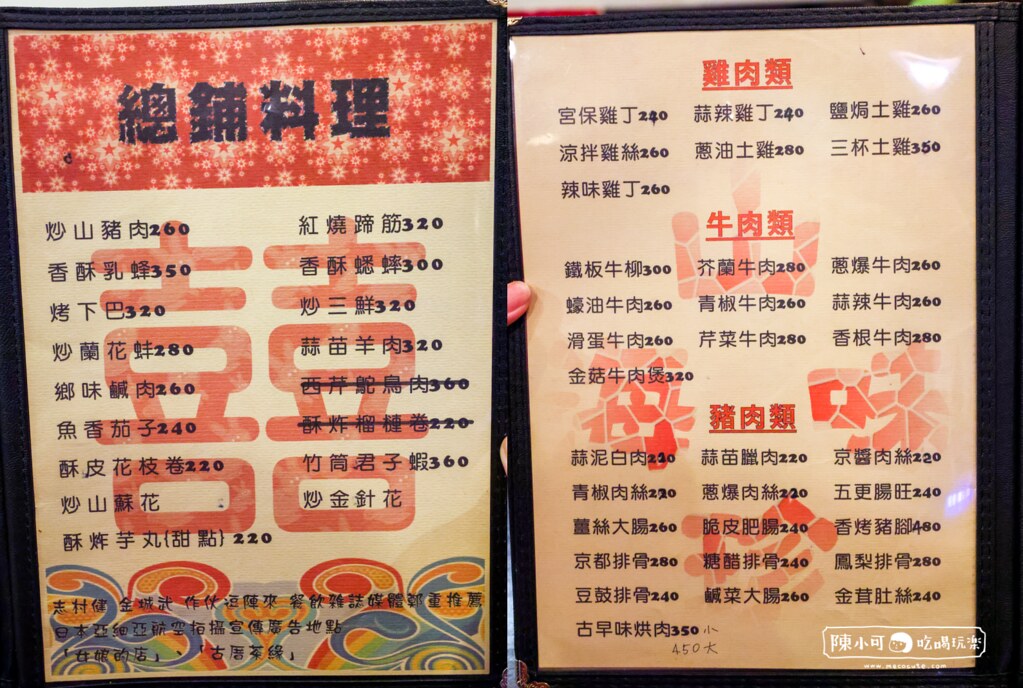 總鋪料理
炒山豬肉260 紅燒蹄筋320
香酥乳蜂350 香酥蟋蟀300
烤下巴320 炒三鮮320
炒蘭花蚌280 蒜苗羊肉320
鄉味鹹肉260 西芹鴕鳥肉360
魚香茄子240 酥炸榴槤卷220
酥皮花枝卷220 竹筒君子蝦360
炒山蘇花 炒金針花
酥炸芋丸{甜點} 220
志村健 金城武 作伙逗陣來 餐飲雜誌媒體鄭重推薦
日本亞細亞航空指搵宣傳廣告地點
「女娘的店」、「古厝茶緣」
雞肉類
宮保雞丁240 蒜辣雞丁240 鹽焗土雞260
涼拌雞絲260 蔥油土雞280 三杯土雞350
辣味雞丁260
牛肉類
鐵板牛柳300 芥蘭牛肉280 蔥爆牛肉260
蠔油牛肉260 青椒牛肉260 蒜辣牛肉260
滑蛋牛肉260 芹菜牛肉280 香根牛肉280
金菇牛肉煲320
豬肉類
蒜泥白肉220 蒜苗臘肉220 京醬肉絲220
青椒肉絲220 蔥爆肉絲220 五更腸旺240
薑絲大腸260 脆皮肥腸240 香烤豬腳480
京都排骨280 糖醋排骨240 鳳梨排骨280
豆鼓排骨240 鹹菜大腸260 金茸肚絲240
古早味烘肉350小
450大
陳小可 吃喝玩樂
www.macocute.com